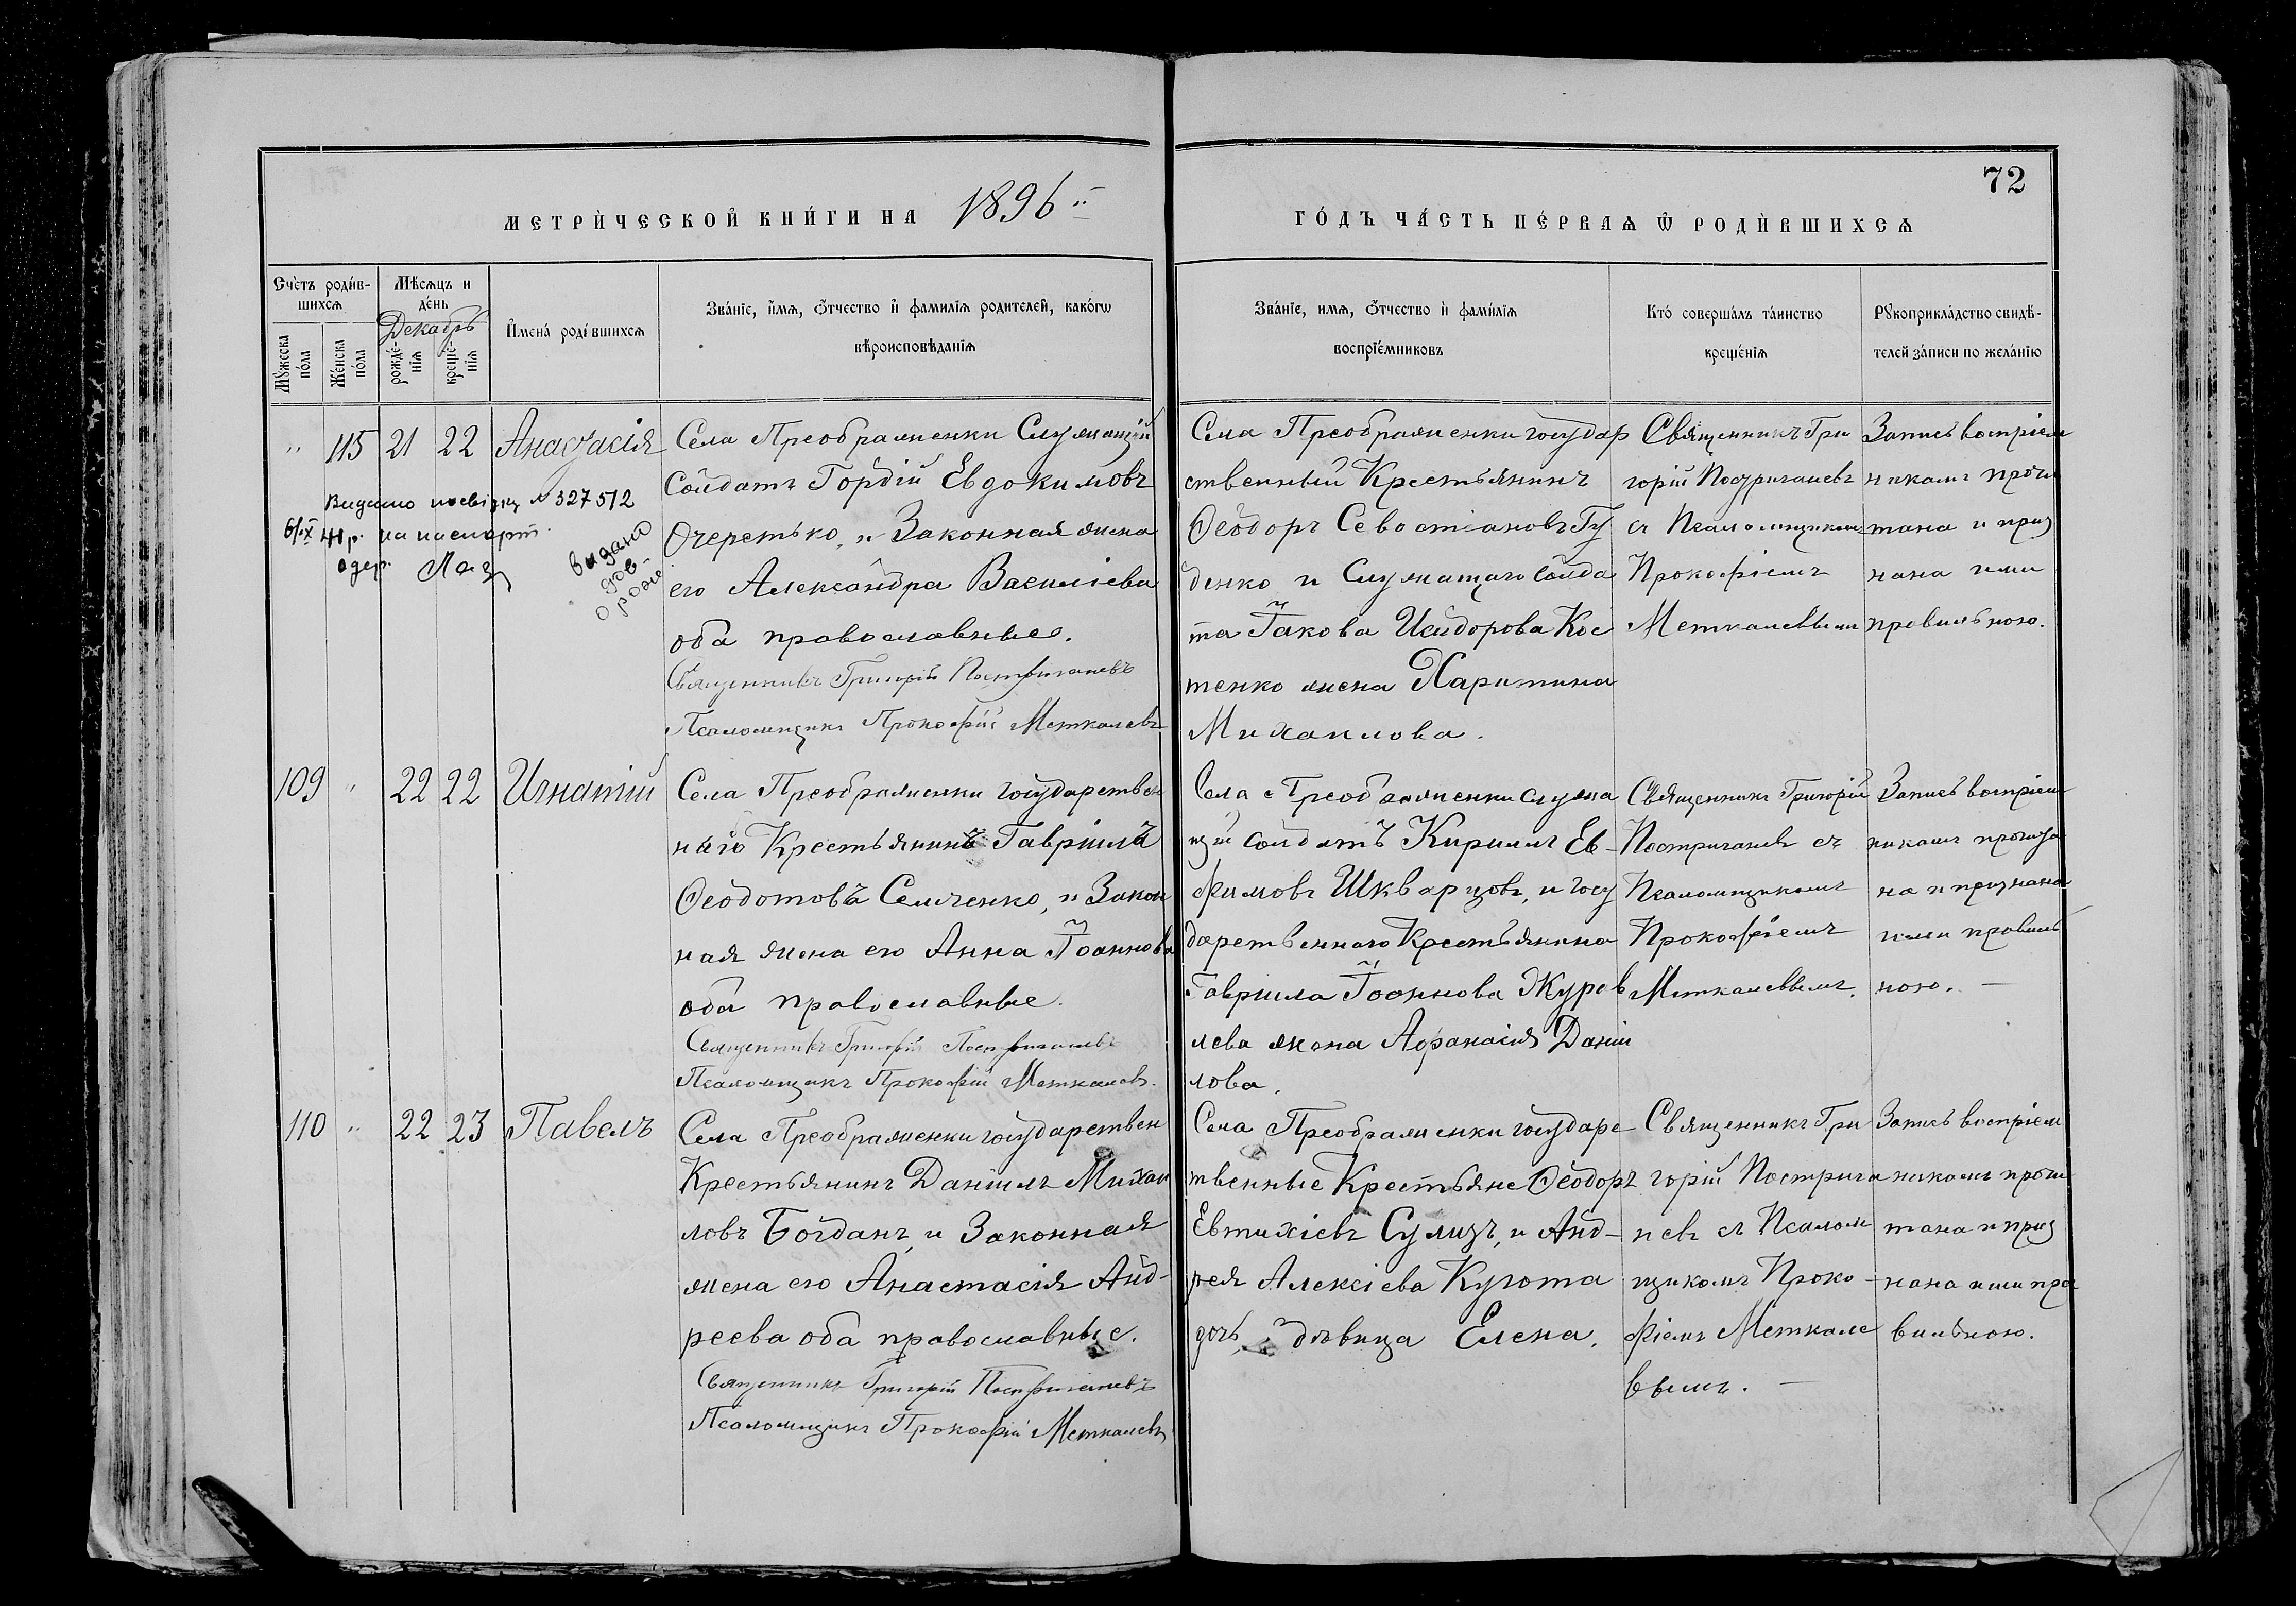 72
МЕТРИ́ЧЕСКОЙ КНИ́ГИ НА 1896
ГО́ДЪ ЧА́СТЬ ПЕ́РВАѦ Ѡ҆ РОДИ́ВШИХСѦ
Сче́тъ роди́в-
шихсѧ
Мꙋ́жеска по́ла
Же́нска по́ла
Мѣ́сѧцъ и
де́нь
Декабрь
рожде́-нїѧ
креще́-нїѧ
И҆мена́ роди́вшихсѧ
Зва́нїе, и҆́мѧ, ѻ҆́тчество и҆ фамилїѧ родителей, како́гѡ
вѣроисповѣ́данїѧ
Зва́нїе, имѧ, ѻ҆́тчество и҆ фами́лїѧ
воспрїе́мниковъ
Кто́ соверша́лъ та́инство
креще́нїѧ
Рꙋкоприкла́дство свидѣ́-
телей за́писи по жела́нїю
" 115 21 22 Анастасія
Видано посвідку № 327512
41 р. на паспорт
видано
дов-
Села Преображенки Служащій
Солдатъ Гордій Евдокимовъ
Очеретько, и Законная жена
его Александра Василіева
оба православные.
Священникъ Григорій Постригачевъ
Псаломщикъ Прокофій Меткалевъ
Села Преображенки государ
ственный Крестьянинъ
Ѳеодоръ Севостіановъ Гу
денко и Служащаго Солда
та Іакова Исидорова Кос
тенко жена Харитина
Михаилова.
Священникъ Гри
горій Постригачевъ
съ Псаломщикомъ
Прокофіемъ
Меткалевымъ
Запись воспріем
никамъ прочи
тана и приз
нана ими
правильною.
109 " 22 22 Игнатій
Села Преображенки государствен
наго Крестьянина Гавріила
Ѳеодотова Семченко, и Закон
ная жена его Анна Іоаннова
оба православные.
Священникъ Григорій Постригачевъ
Псаломщикъ Прокофій Меткалевъ.
Села Преображенки служа
щій солдатъ Кириллъ Ев-
фимовъ Шкварцовъ, и госу
дарственнаго Крестьянина
Гавріила Іоаннова Журав
лева жена Афанасія Даніи
лова.
Священникъ Григорій
Постригачевъ съ
Псаломщикомъ
Прокофіемъ
Меткалевымъ.
Запись воспріем
никамъ прочита
на и признана
ими правиль
ною. –
110 " 22 23 Павелъ
Села Преображенки государствен
Крестьянинъ Даніилъ Михаи
ловъ Богданъ, и Законная
жена его Анастасія Анд-
реева оба православные.
Священникъ Григорій Постригачевъ
Псаломщикъ Прокофій Меткалевъ
Села Преображенки государс
твенные Крестьяне Ѳеодоръ
Евтихіевъ Сулизъ, и Анд-
рея Алексіева Кугота
дочь, дѣвица Елена.
Священникъ Гри
горій Пострига
чевъ съ Псалом
щикомъ Проко-
фіемъ Меткале
вымъ. –
Запись воспріем
никамъ прочи
тана и приз
нана ими пра
вильною.